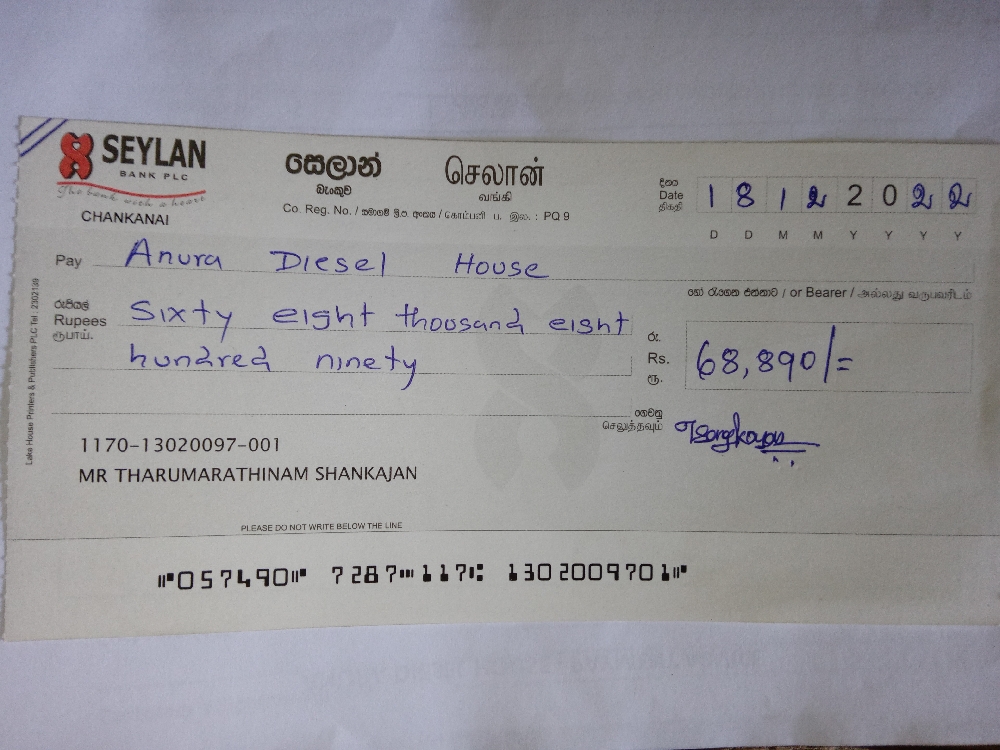 SEYLAN
BANK PLC
The bank with a heart
CHANKANAI
සෙලාන්
බැංකුව
செலான்
வங்கி
Co. Reg. No. / සමාගම් ලි.ප. අංකය / கொம்பனி ப. இல. : PQ 9
දිනය
Date
திகதி
1 8 1 2 2 0 2 2
D D M M Y Y Y Y
Pay Anura Diesel House
හෝ රැගෙන එන්නාට / or Bearer / அல்லது வருபவரிடம்
රුපියල්
Rupees
ரூபாய்.
Sixty eight thousand eight
hundred ninety
රු.
Rs.
ரூ.
68,890/=
ගෙවනු
செலுத்தவும்
Lake House Printers & Publishers PLC Tel : 2302139
1170-13020097-001
MR THARUMARATHINAM SHANKAJAN
PLEASE DO NOT WRITE BELOW THE LINE
⑈057490⑈ 7287⑉117⑆ 1302009701⑈